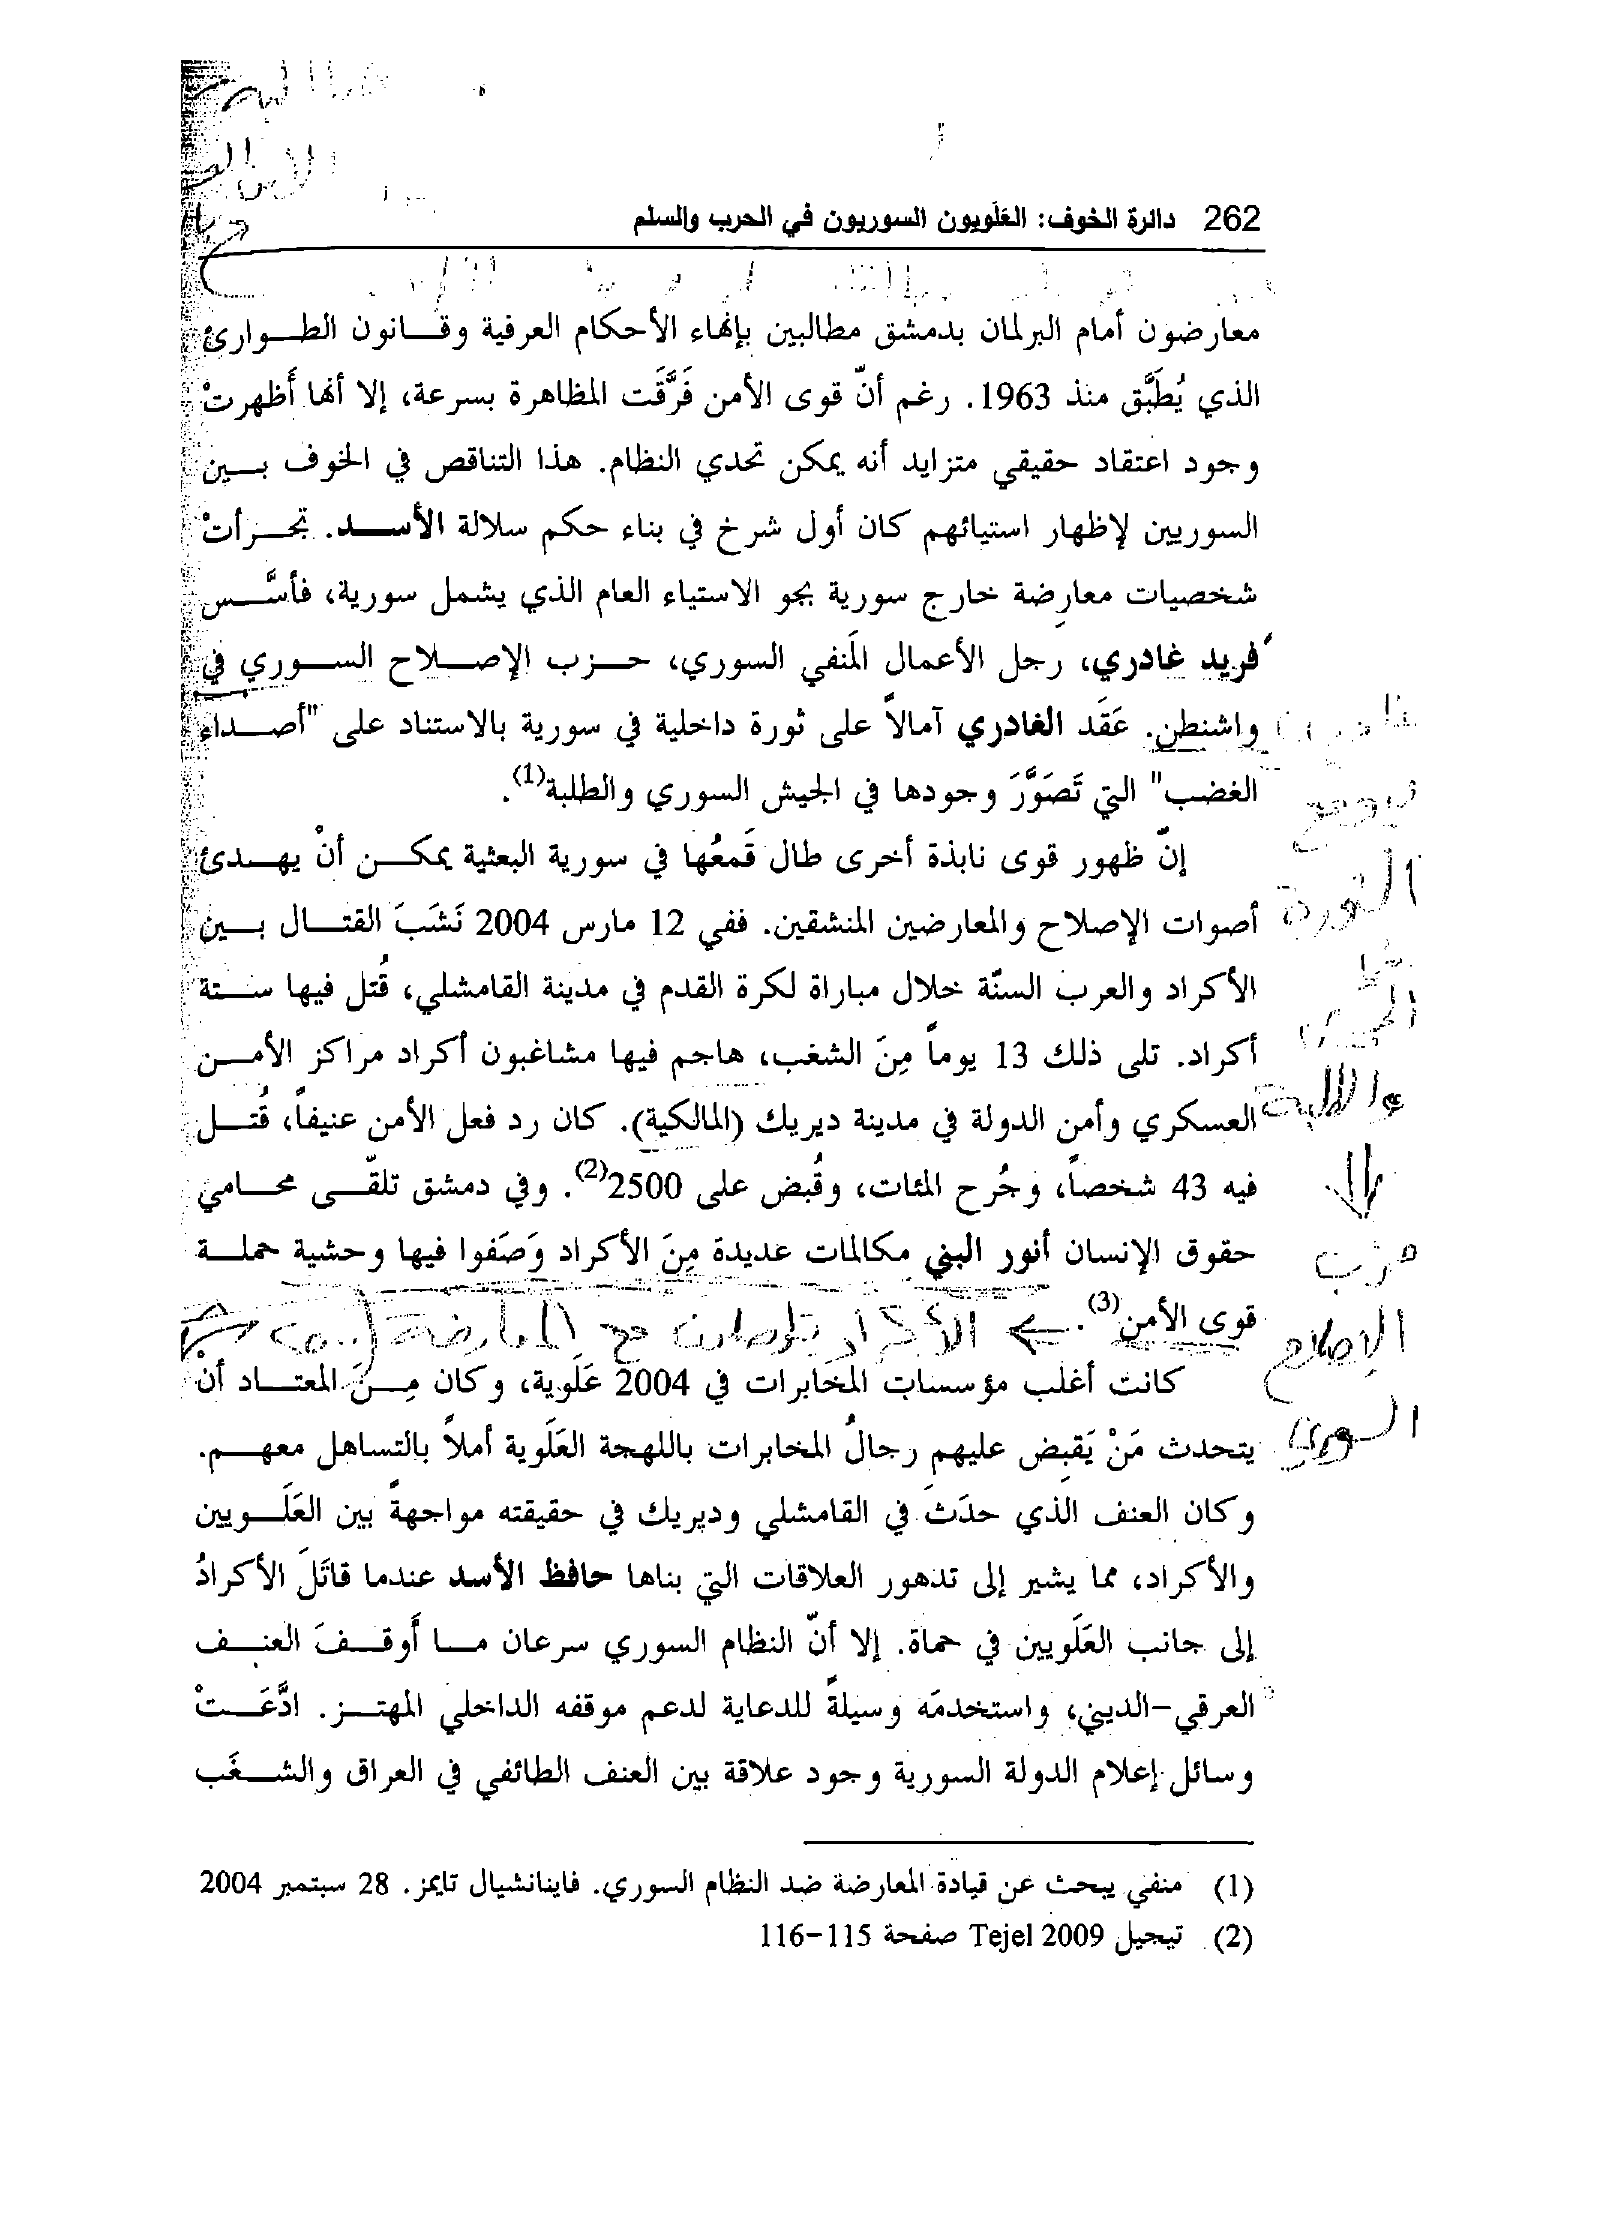 262 دائرة الخوف: العَلَويون السوريون في الحرب والسلم
معارضون أمام البرلمان بدمشق مطالبين بإنهاء الأحكام العرفية وقـــانون الطـــوارئ
الذي يُطَبَّق منذ 1963. رغم أنّ قوى الأمن فَرَّقَت المظاهرة بسرعة، إلا أنها أَظهرتْ
وجود اعتقاد حقيقي متزايد أنه يمكن تحدي النظام. هذا التناقص في الخوف بـــين
السوريين لإظهار استيائهم كان أول شرخ في بناء حكم سلالة الأســـد. تجـــرأتْ
شخصيات معارضة خارج سورية بجو الاستياء العام الذي يشمل سورية، فأسَّـــس
فريد غادري، رجل الأعمال المَنفي السوري، حـــزب الإصـــلاح الســـوري في
واشنطن. عَقَد الغادري آمالاً على ثورة داخلية في سورية بالاستناد على "أصـــداء
الغضب" التي تَصَوَّرَ وجودها في الجيش السوري والطلبة(1).
إنّ ظهور قوى نابذة أخرى طال قَمعُها في سورية البعثية يمكـــن أنْ يهـــدئ
أصوات الإصلاح والمعارضين المنشقين. ففي 12 مارس 2004 نَشَبَ القتـــال بـــين
الأكراد والعرب السنّة خلال مباراة لكرة القدم في مدينة القامشلي، قُتل فيها ســـتة
أكراد. تلى ذلك 13 يوماً مِنَ الشغب، هاجم فيها مشاغبون أكراد مراكز الأمـــن
العسكري وأمن الدولة في مدينة ديريك (المالكية). كان رد فعل الأمن عنيفاً، قُتـــل
فيه 43 شخصاً، وجُرح المئات، وقُبض على 2500(2). وفي دمشق تلقّـــى محـــامي
حقوق الإنسان أنور البني مكالمات عديدة مِنَ الأكراد وَصَفوا فيها وحشية حملـــة
قوى الأمن(3).
← الأكراد يتواصلون مع المعارضة
كانت أغلب مؤسسات المخابرات في 2004 عَلَوية، وكان مِـــنَ المعتـــاد أنْ
يتحدث مَنْ يَقبِض عليهم رجالُ المخابرات باللهجة العَلَوية أملاً بالتساهل معهـــم.
وكان العنف الذي حدَث في القامشلي وديريك في حقيقته مواجهةً بين العَلَـــويين
والأكراد، مما يشير إلى تدهور العلاقات التي بناها حافظ الأسد عندما قاتَلَ الأكرادُ
إلى جانب العَلَويين في حماة. إلا أنّ النظام السوري سرعان مـــا أَوقـــفَ العنـــف
العرقي-الديني، واستخدمَه وسيلةً للدعاية لدعم موقفه الداخلي المهتـــز. ادَّعَـــتْ
وسائل إعلام الدولة السورية وجود علاقة بين العنف الطائفي في العراق والشـــغَب
الثورة
والطلبة
حزب
الإصلاح
السوري
(1) منفي يبحث عن قيادة المعارضة ضد النظام السوري. فاينانشيال تايمز. 28 سبتمبر 2004
(2) تيجيل Tejel 2009 صفحة 115-116